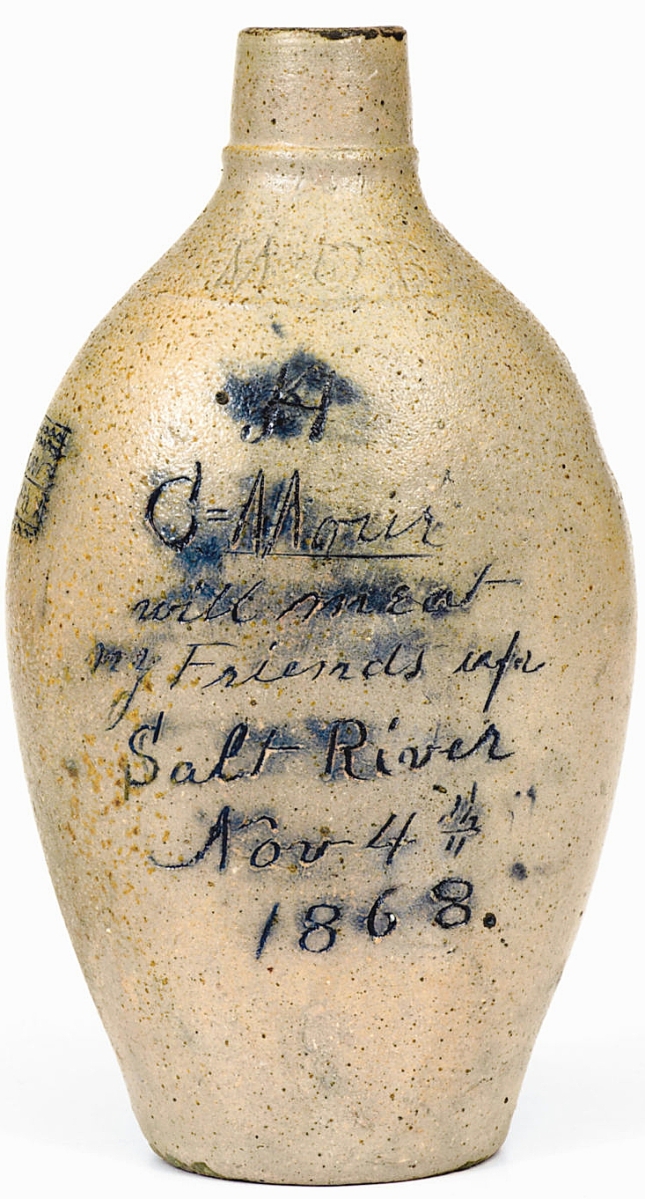 H
C=Mour
will meat
my Friends up
Salt River
Nov 4th
1868.